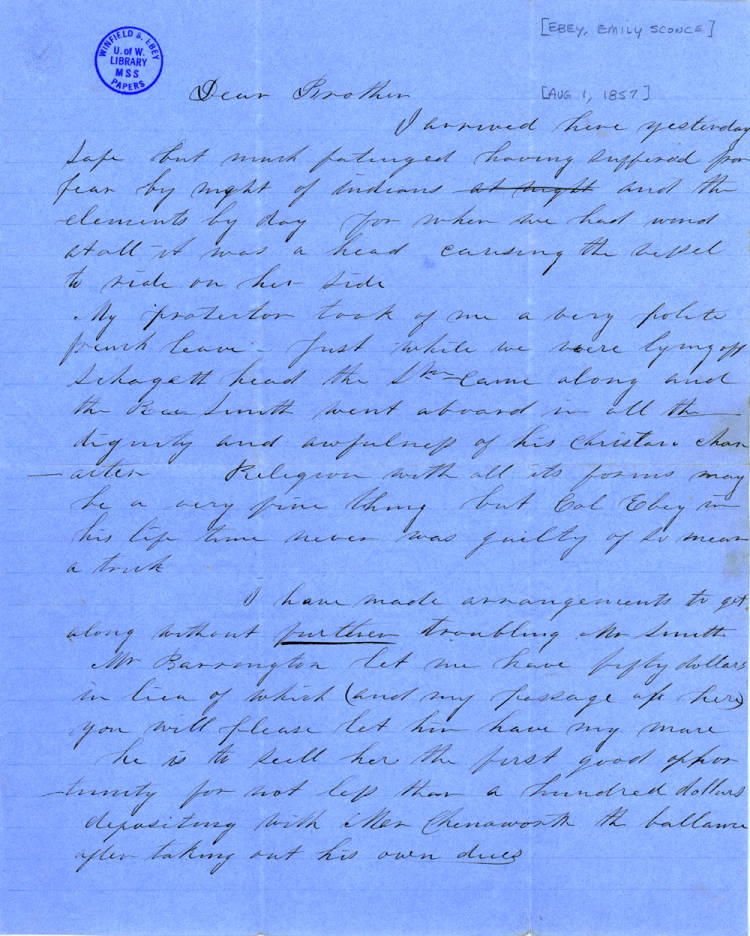 WINFIELD S. EBEY
U. of W.
LIBRARY
MSS
PAPERS
[EBEY, EMILY SCONCE]
[AUG 1, 1857]
Dear Brother
I arrived here yesterday
safe but much fatiuged having suffered from
fear by night of indians at night and the
elements by day for when we had wind
atall it was a head causing the vessel
to ride on her side
My protector took of me a very polite
french leave - just while we were lying off
head the Stm came along and
the Smith went aboard in all the
dignity and awfulness of his Christian char
acter Religion with all its forms may
be a very fine thing but Col Ebey in
his life time never was guilty of so mean
a trick
I have made arrangements to get
along without further troubling Mr Smith
Mr Barrington let me have fifty dollars
in lieu of which (and my passage up here)
you will please let him have my mare
he is to sell her the first good oppor
tunity for not less than a hundred dollars
depositing with Chenaworth the ballance
after taking out his own dues